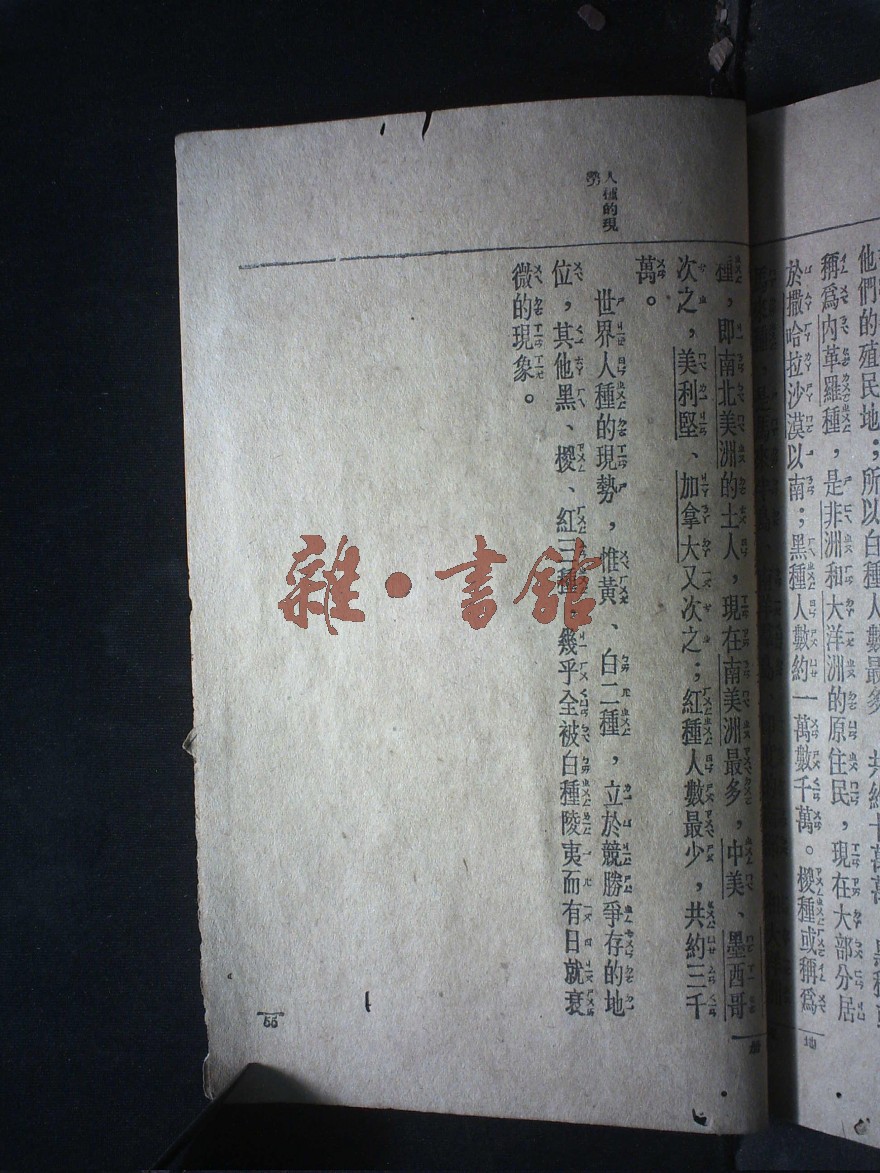 他們的殖民地；所以白種人數最多，共約十萬萬。黑種
稱爲內革羅種，是非洲和大洋洲的原住民，現在大部分居
於撒哈拉沙漠以南；黑種人數約一萬數千萬。椶種或稱爲
種，即南北美洲的土人，現在南美洲最多，中美、墨西哥
次之，美利堅、加拿大又次之；紅種人數最少，共約三千
萬。
人種的現
勢
世界人種的現勢，惟黃、白二種，立於競勝爭存的地
位，其他黑、椶、紅三種，幾乎全被白種陵夷而有日就衰
微的現象。
55
雜·書館